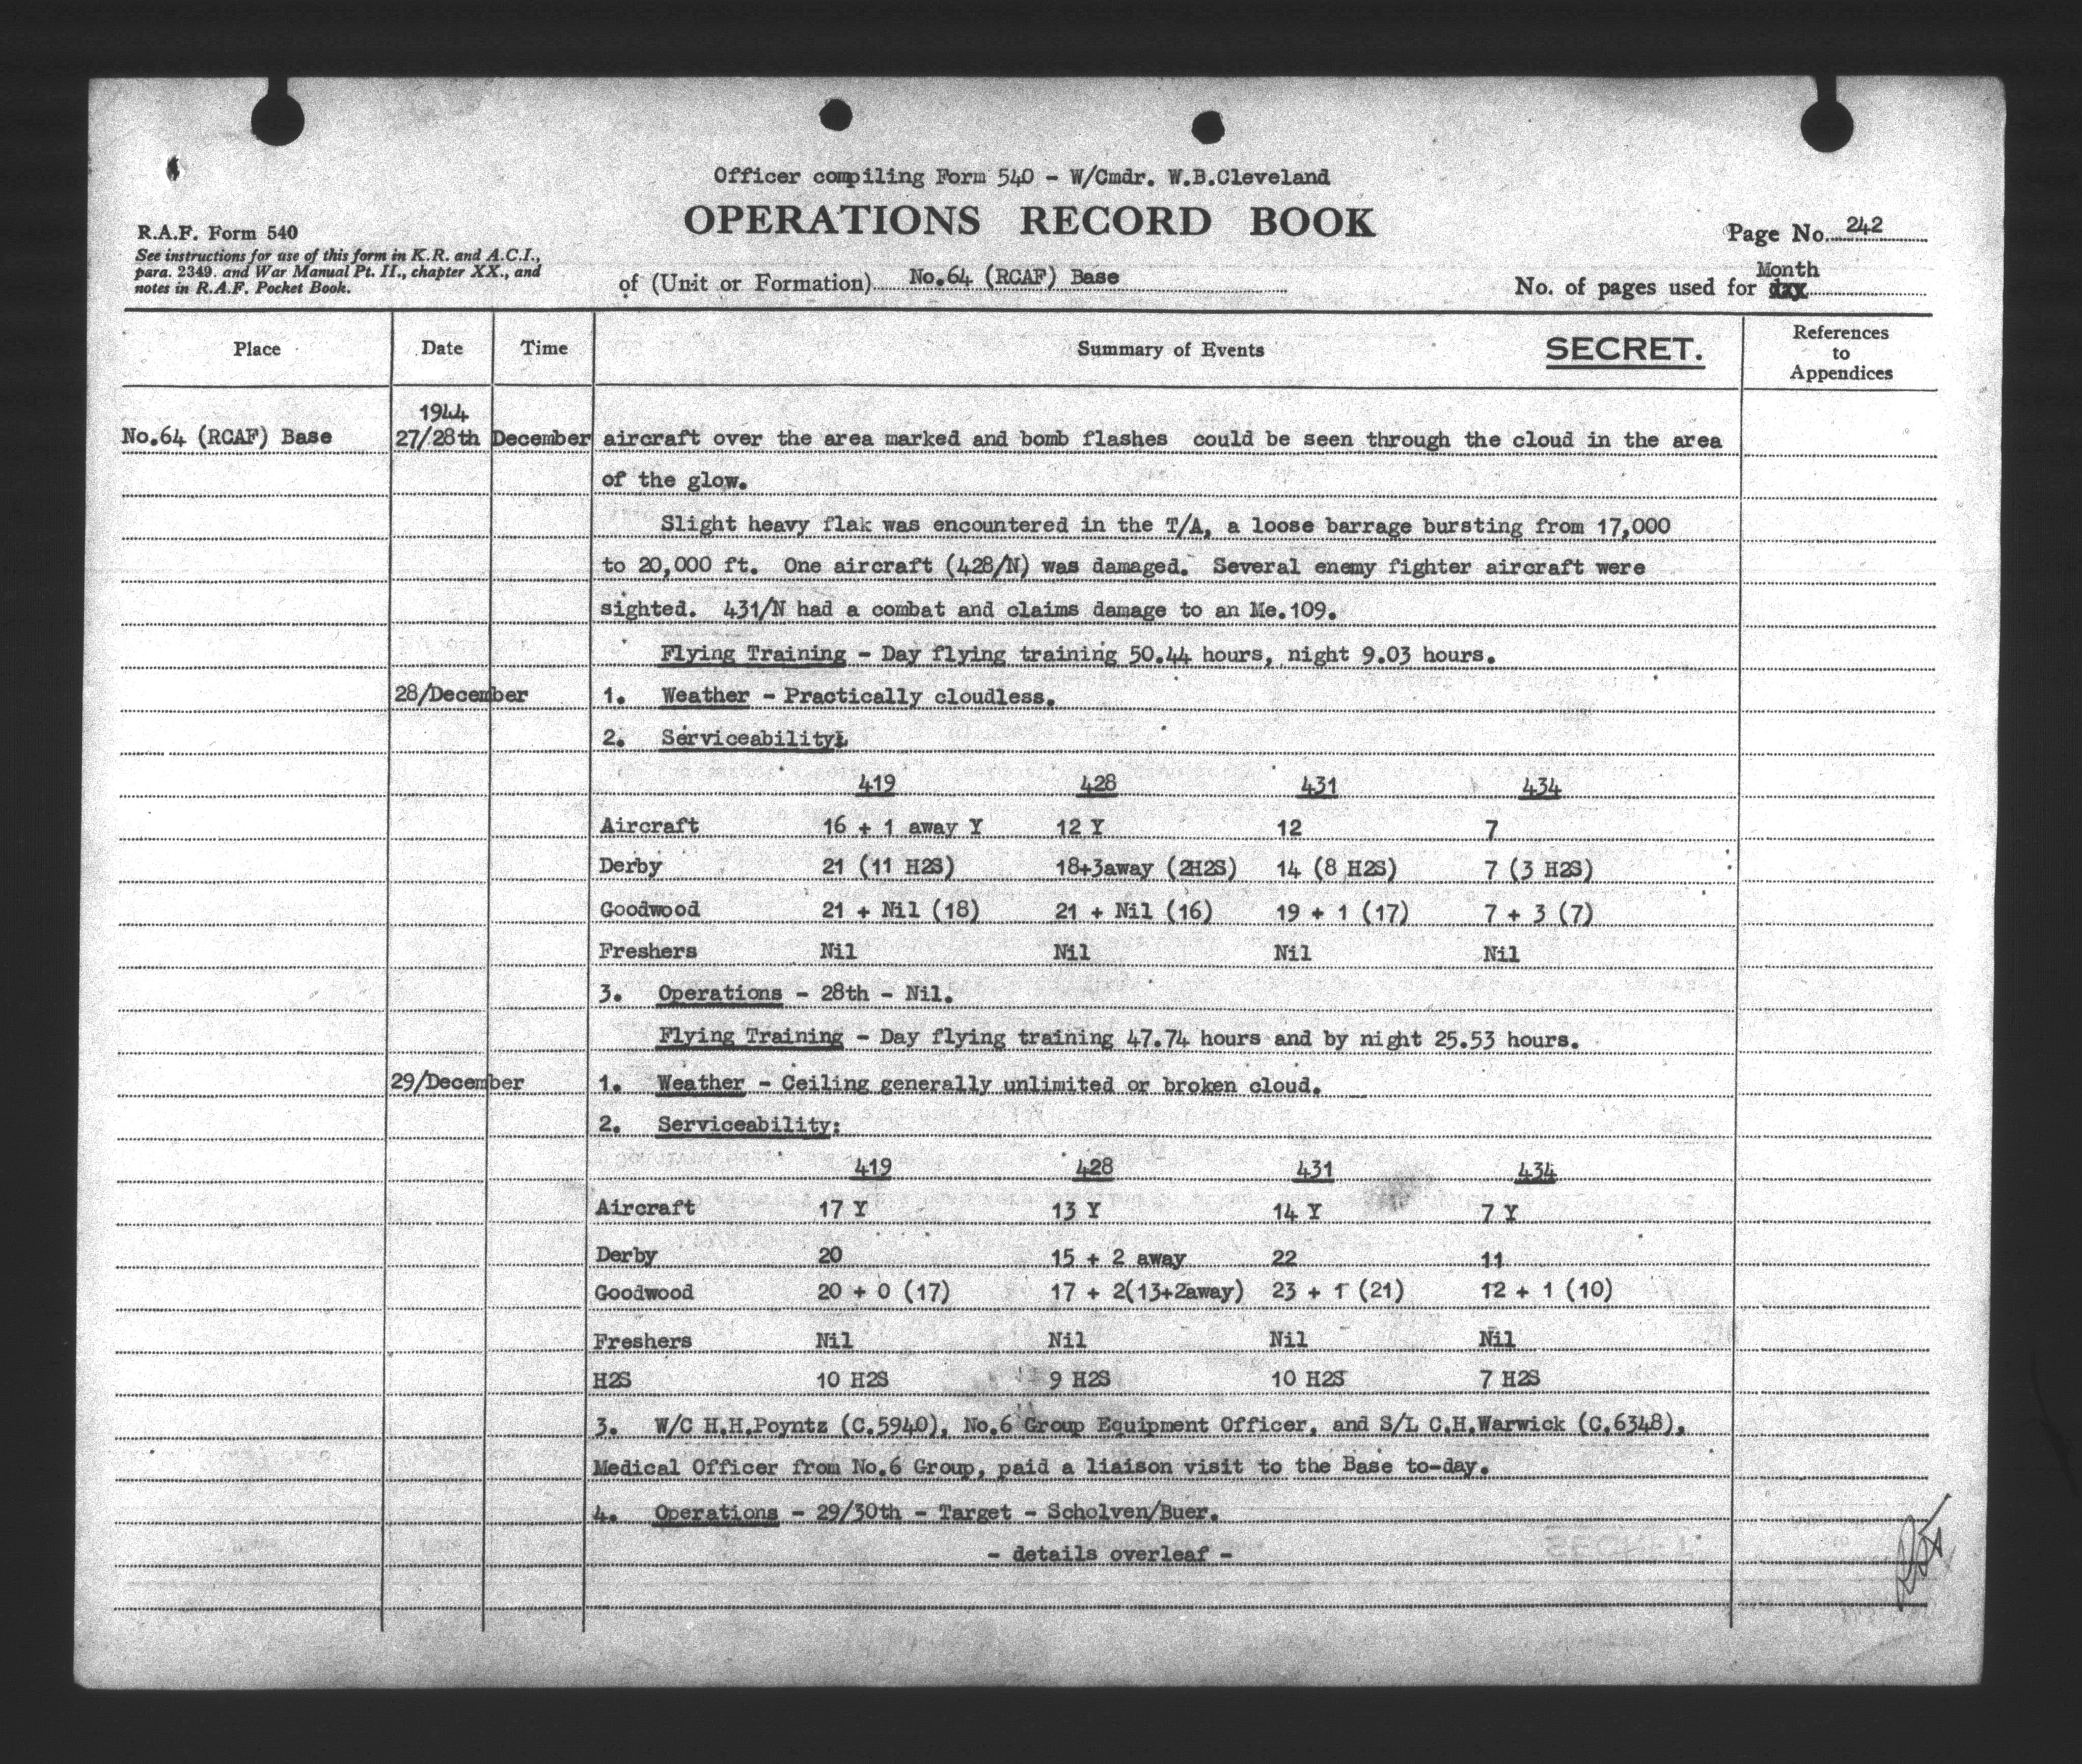 Officer compiling Form 540 - W/Cmdr. W.B.Cleveland
OPERATIONS RECORD BOOK
R.A.F. Form 540
See instructions for use of this form in K.R. and A.C.I.,
para. 2349. and War Manual Pt. II., chapter XX., and
notes in R.A.F. Pocket Book.
of (Unit or Formation) No.64 (RCAF) Base
Page No. 242
Month
No. of pages used for day
Place Date Time Summary of Events SECRET. References
to
Appendices
1944
No.64 (RCAF) Base 27/28th December aircraft over the area marked and bomb flashes could be seen through the cloud in the area
of the glow.
Slight heavy flak was encountered in the T/A, a loose barrage bursting from 17,000
to 20,000 ft. One aircraft (428/N) was damaged. Several enemy fighter aircraft were
sighted. 431/N had a combat and claims damage to an Me.109.
Flying Training - Day flying training 50.44 hours, night 9.03 hours.
28/December 1. Weather - Practically cloudless.
2. Serviceability:
419 428 431 434
Aircraft 16 + 1 away Y 12 Y 12 7
Derby 21 (11 H2S) 18+3away (2H2S) 14 (8 H2S) 7 (3 H2S)
Goodwood 21 + Nil (18) 21 + Nil (16) 19 + 1 (17) 7 + 3 (7)
Freshers Nil Nil Nil Nil
3. Operations - 28th - Nil.
Flying Training - Day flying training 47.74 hours and by night 25.53 hours.
29/December 1. Weather - Ceiling generally unlimited or broken cloud.
2. Serviceability:
419 428 431 434
Aircraft 17 Y 13 Y 14 Y 7 Y
Derby 20 15 + 2 away 22 11
Goodwood 20 + 0 (17) 17 + 2(13+2away) 23 + 1 (21) 12 + 1 (10)
Freshers Nil Nil Nil Nil
H2S 10 H2S 9 H2S 10 H2S 7 H2S
3. W/C H.H.Poyntz (C.5940), No.6 Group Equipment Officer, and S/L C.H.Warwick (C.6348),
Medical Officer from No.6 Group, paid a liaison visit to the Base to-day.
4. Operations - 29/30th - Target - Scholven/Buer.
- details overleaf -